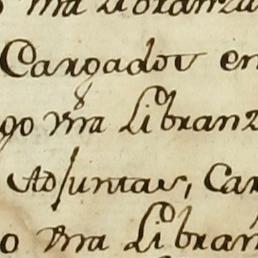 una Libranza
Cargados en
go vña Libranz
Adjuntas, Car
o vña Libran